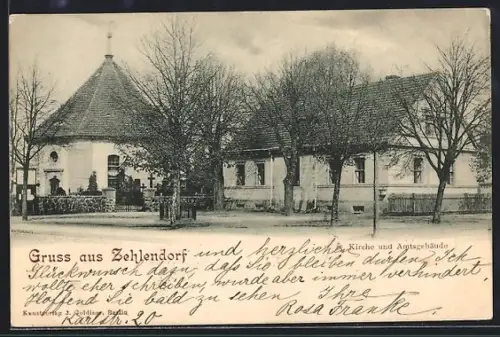 Kirche und Amtsgebäude
Gruss aus Zehlendorf und herzlichen
Glückwunsch dazu, daß Sie bleiben dürfen. Ich
wollte eher schreiben, wurde aber immer verhindert.
Hoffend Sie bald zu sehen, Ihre
Rosa Franke
Kunstverlag J. Goldiner, Berlin
Karlstr. 20